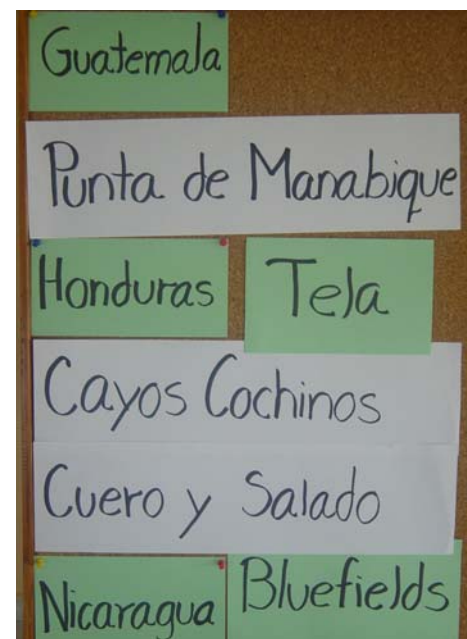 Guatemala
Punta de Manabique
Honduras Tela
Cayos Cochinos
Cuero y Salado
Nicaragua Bluefields